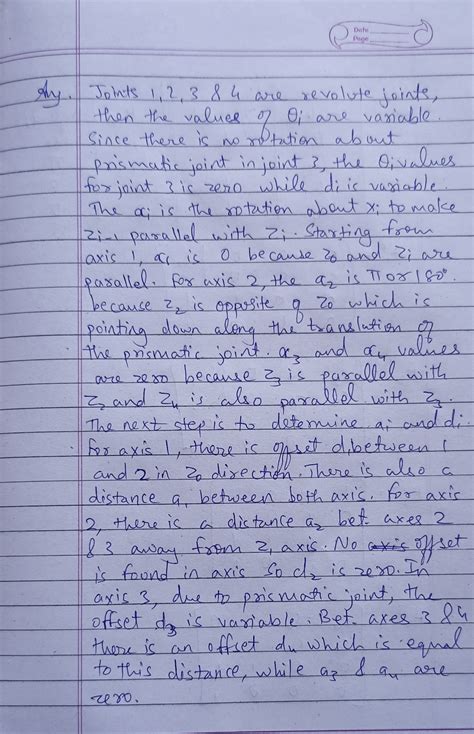 Date
Page
Any. Joints 1, 2, 3 & 4 are revolute joints,
then the values of θi are variable.
Since there is no rotation about
prismatic joint in joint 3, the θi values
for joint 3 is zero while di is variable.
The αi is the rotation about xi to make
zi-1 parallel with zi. Starting from
axis 1, α1 is 0 because z0 and z1 are
parallel. For axis 2, the α2 is π or 180°.
because z2 is opposite of z0 which is
pointing down along the translation of
the prismatic joint. α3 and α4 values
are zero because z3 is parallel with
z2 and z4 is also parallel with z3.
The next step is to determine ai and di.
For axis 1, there is offset d1 between 1
and 2 in z0 direction. There is also a
distance a1 between both axis. For axis
2, there is a distance a2 bet. axes 2
& 3 away from z1 axis. No offset
is found in axis so d2 is zero. In
axis 3, due to prismatic joint, the
offset d3 is variable. Bet. axes 3 & 4
there is an offset d4 which is equal
to this distance, while a3 & a4 are
zero.